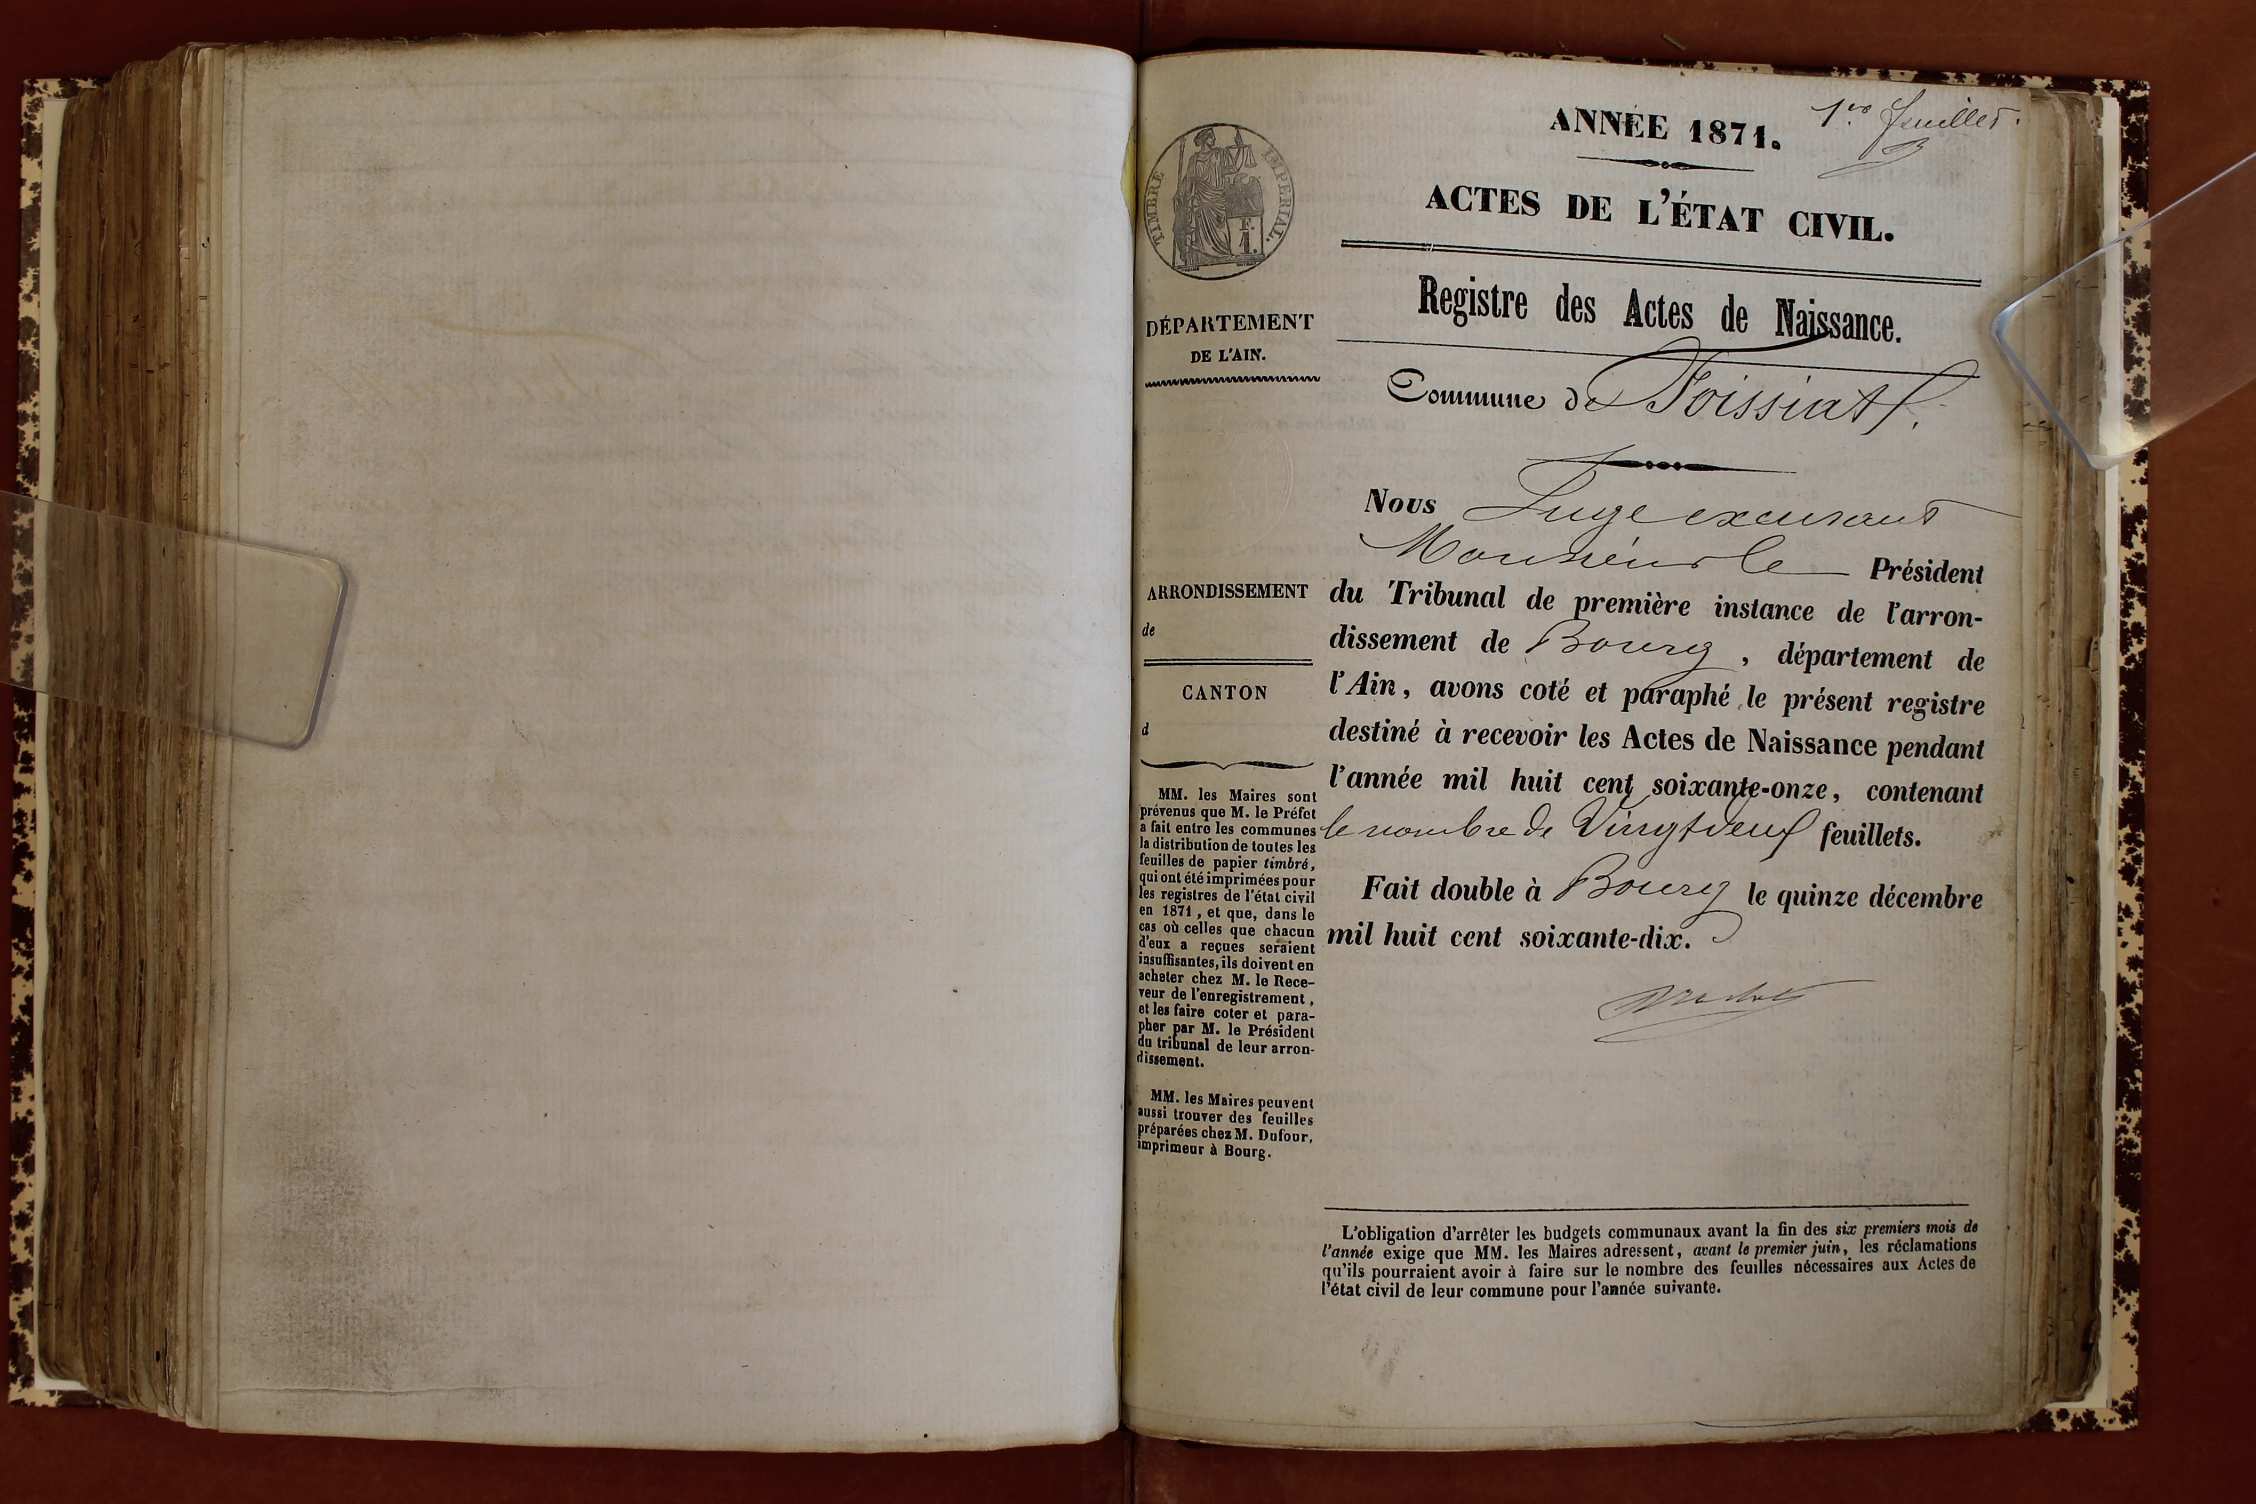 1er feuillet.
ANNÉE 1871.
ACTES DE L'ÉTAT CIVIL.
Registre des Actes de Naissance.
Commune de Foissiat.
TIMBRE IMPERIAL.
F.
1.
DÉPARTEMENT
DE L'AIN.
ARRONDISSEMENT
de
CANTON
d
MM. les Maires sont
prévenus que M. le Préfet
a fait entre les communes
la distribution de toutes les
feuilles de papier timbré,
qui ont été imprimées pour
les registres de l'état civil
en 1871, et que, dans le
cas où celles que chacun
d'eux a reçues seraient
insuffisantes, ils doivent en
acheter chez M. le Rece-
veur de l'enregistrement,
et les faire coter et para-
pher par M. le Président
du tribunal de leur arron-
dissement.
MM. les Maires peuvent
aussi trouver des feuilles
préparées chez M. Dufour,
imprimeur à Bourg.
Nous Juge excusant
Monsieur le Président
du Tribunal de première instance de l'arron-
dissement de Bourg, département de
l'Ain, avons coté et paraphé le présent registre
destiné à recevoir les Actes de Naissance pendant
l'année mil huit cent soixante-onze, contenant
le nombre de feuillets.
Fait double à Bourg le quinze décembre
mil huit cent soixante-dix.
L'obligation d'arrêter les budgets communaux avant la fin des six premiers mois de
l'année exige que MM. les Maires adressent, avant le premier juin, les réclamations
qu'ils pourraient avoir à faire sur le nombre des feuilles nécessaires aux Actes de
l'état civil de leur commune pour l'année suivante.